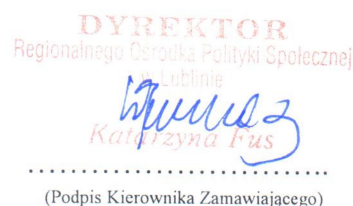 DYREKTOR
Regionalnego Ośrodka Polityki Społecznej
w Lublinie
Katarzyna Fus
(Podpis Kierownika Zamawiającego)